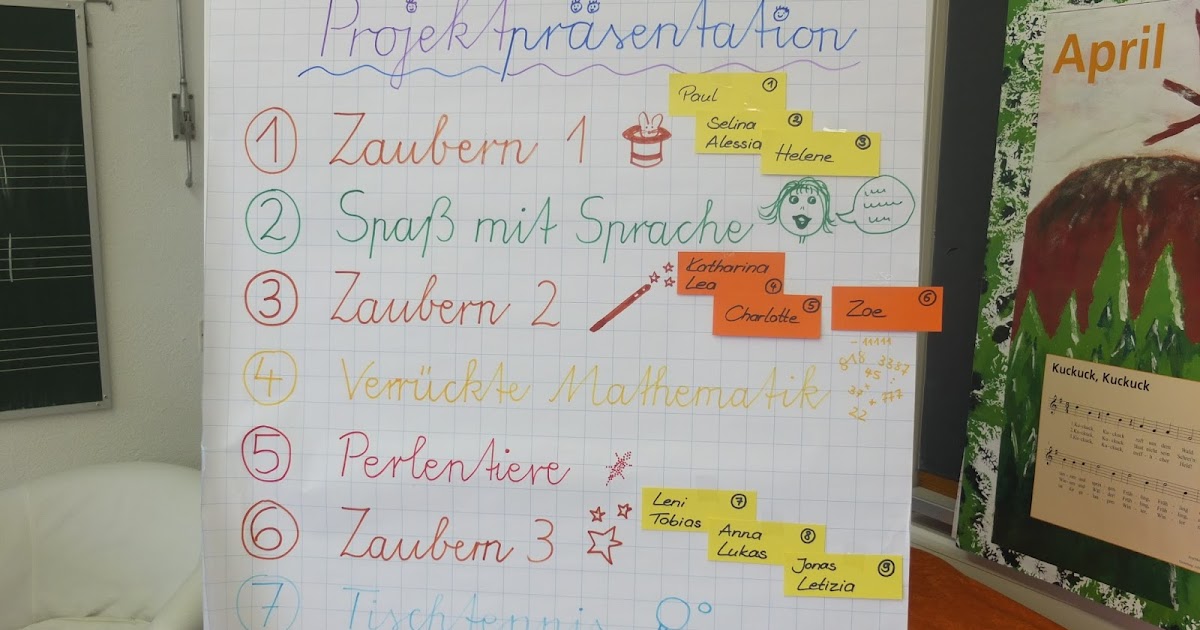 Projektpräsentation
① Zaubern 1
Paul ①
Selina ②
Alessia
Helene ③
② Spaß mit Sprache
③ Zaubern 2
Katharina
Lea ④
Charlotte ⑤
Zoe ⑥
④ Verrückte Mathematik
⑤ Perlentiere
⑥ Zaubern 3
Leni ⑦
Tobias
Anna ⑧
Lukas
Jonas ⑨
Letizia
⑦ Tischtennis
April
Kuckuck, Kuckuck